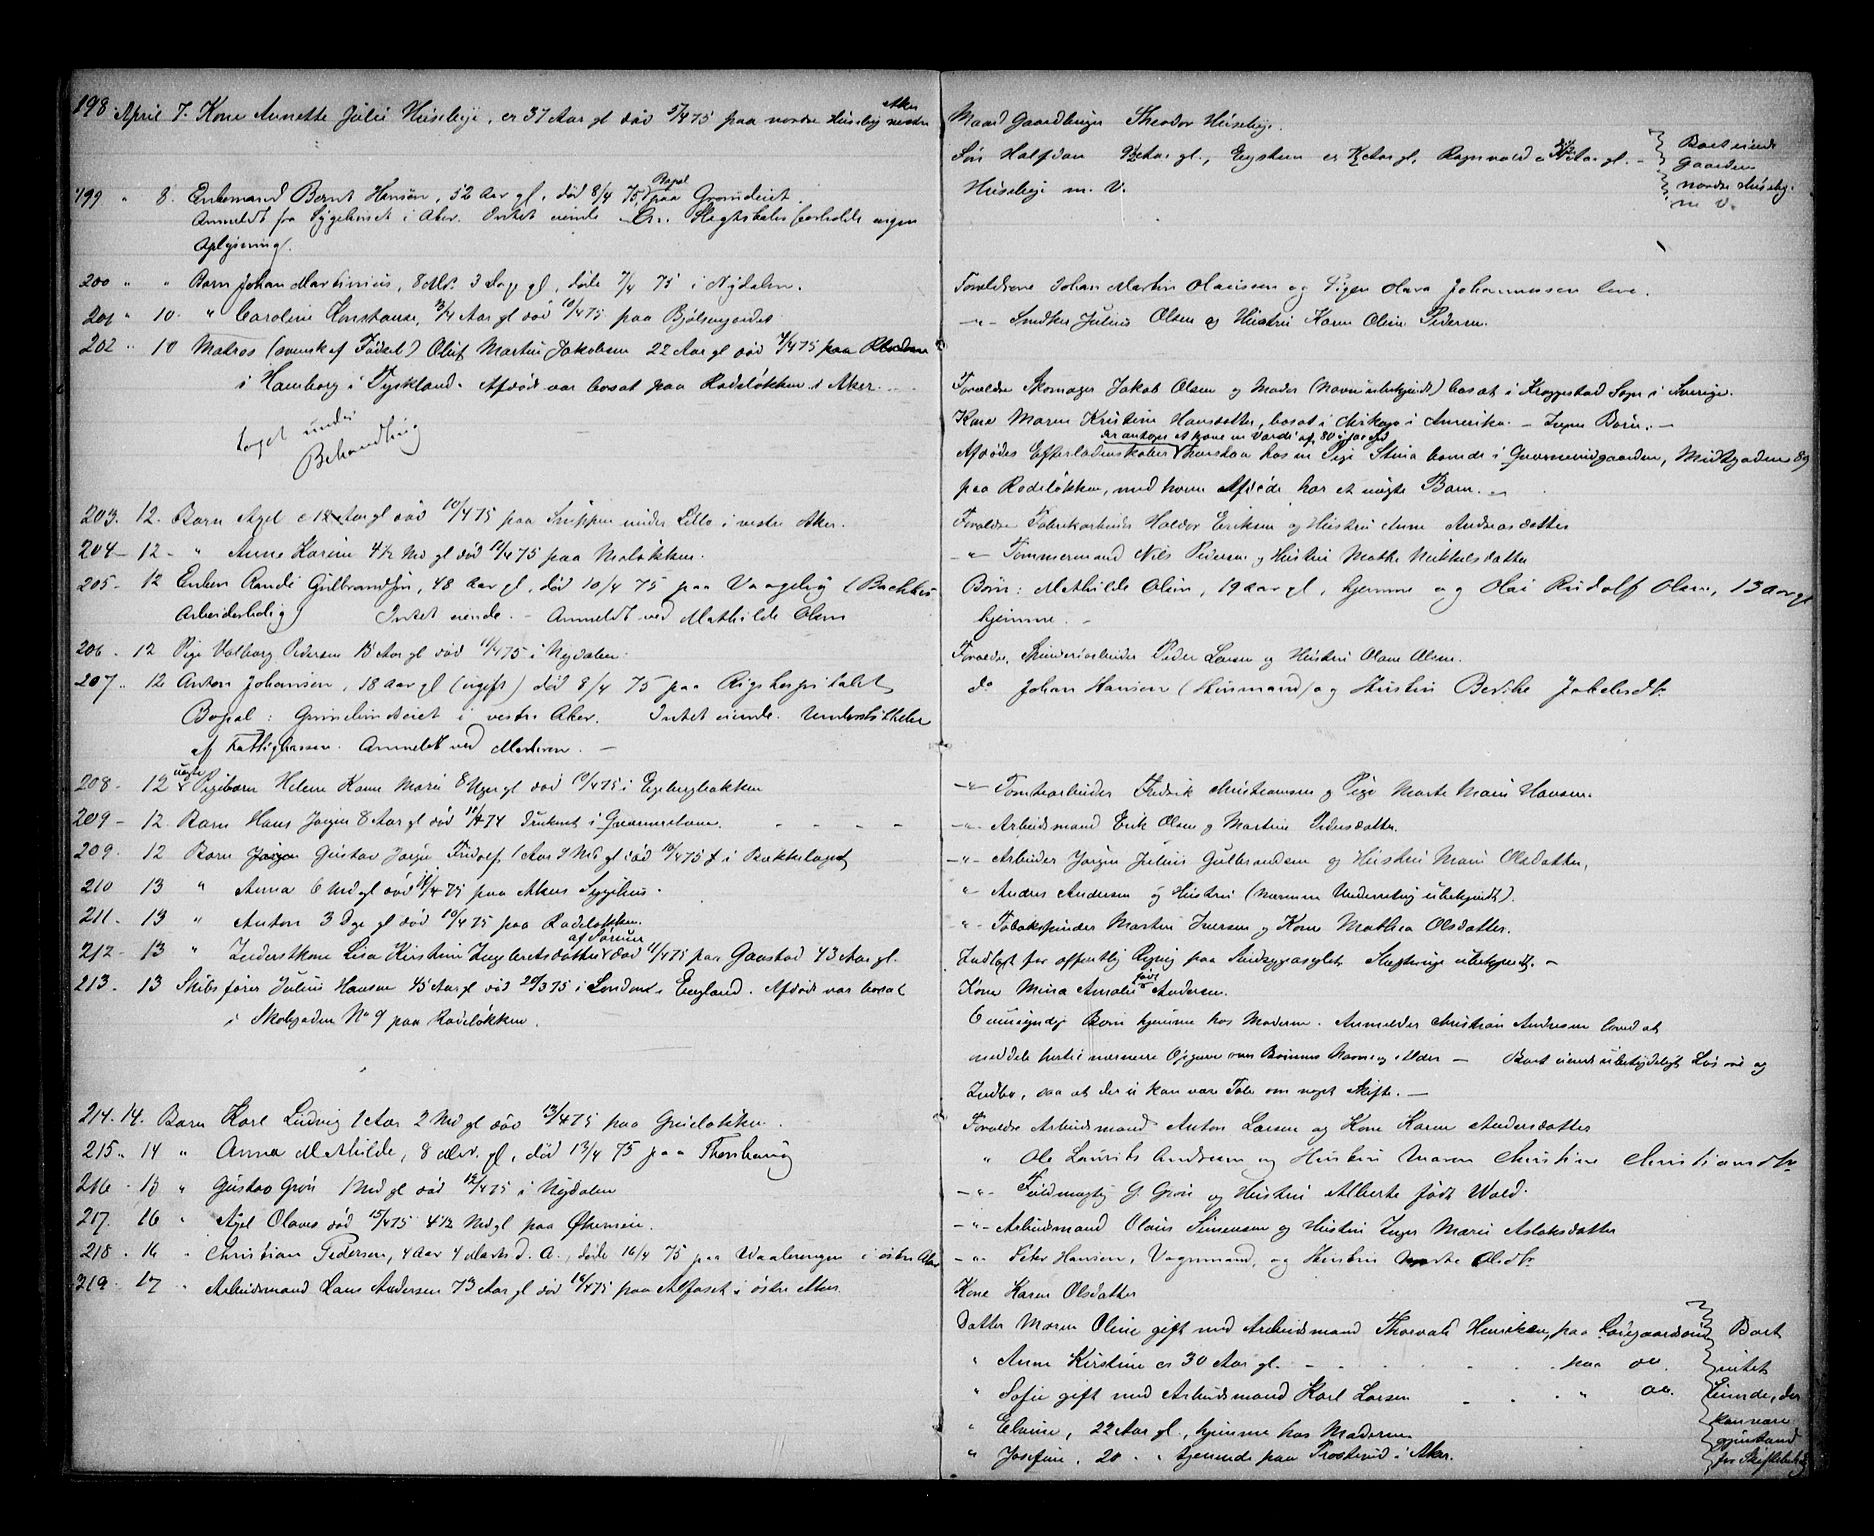 198. April 7. Kone Annette Julie Huseby, er 37 Aar gl død 5/4 75 paa nordre Huseby vestre Aker
Mand Gaardbruger Theodor Huseby.
Søn Halfdan Aar gl., Eystein er Aar gl, Ragnvald Aar gl. –
Huseby m. V.
Boet eiende
Gaarden
nordre Huseby
m. V.
199 " 8. Enkemand Bernt Hansen, 52 Aar gl, død 8/4 75, Bopæl paa Grændeiet.
Anmeldt fra Sygehuset i Aker. Intet eiende. Slegtskabsforholde ingen
Oplysning.
200 " " Barn Johan Martinius, 8 Md. 3 Dage gl, døde 7/4 75 i Nydalen.
Forældrene Johan Martin Olaissen og Pigen Johannessen leve.
201 " 10. " Caroline Konstanse, 3/4 Aar gl død 10/4 75 paa Bjølsenjordet
–"– Snedker Julius Olsen og Hustru Karen Oline Pedersen.
202 " 10 Matros (svensk af Fødsel) Oluf Martin Jakobsen 22 Aar gl død 4/4 75
i Hamborg i Tyskland. Afdøde var bosat paa Rodeløkken i Aker.
Forældre Skomager Jakob Olsen og Moder (Navn ubekjendt) bosat i Sogn i Sverige.
Kone Maren Kristine Hansdatter, bosat i Chikago i Amerika. – Ingen Børn. –
taget under
Behandling
Afdødes Efterladenskaber der antages at have en Værdi af 80 hos en Pige Stina boende i Midtgaden 89
paa Rodeløkken, med hvem Afdøde har et uægte Barn.
203. 12. Barn Axel Aar gl død 10/4 75 paa under Lillo i vestre Aker.
Forældre Fabrikarbeider Haldor Eriksen og Hustru Anne Andreasdatter
204 – 12 – " Anne Karine 4½ Md gl død 11/4 75 paa
–"– Tømmermand Nils Pedersen og Hustru Mathe Mikkelsdatter
205 – 12 Enken Randi Gulbrandsen, 48 Aar gl, død 10/4 75 paa Vaageby (Bachkes
Arbeiderbolig) Intet eiende. – Anmeldt ved Mathilde Olsen
Børn: Mathilde Olsen, 19 Aar gl, hjemme og Olai Rudolf Olsen, 13 Aar gl
hjemme. –
206. 12 Pige Valborg Pedersen Aar gl død 11/4 75 i Nydalen.
Forældre, Spinderiarbeider Peder Larsen og Hustru Olava Olsen.
207 " 12 Anton Johansen, 18 Aar gl (ugift) død 8/4 75 paa Rigshospitalet
Bopæl: i vestre Aker. Intet eiende. Understøttelse
af Fattigkassen. Anmeldt ved Moderen. –
do Johan Hansen (Husmand) og Hustru Berthe Jakobsdtr.
208 – 12 uægte Pigebarn Helene Karen Marie 8 Uger gl død 10/4 75 i Egebergbakken
–"– Tomtearbeider Fredrik Christiansen og Pige Marte Marie Hansen.
209 – 12 Barn Hans Jørgen 8 Aar gl død 74 Druknet i
–"– Arbeidsmand Erik Olsen og Martine Pedersdatter.
209. 12 Barn Gustav Jørgen Fridolf, 1 Aar 9 Md gl død 10/4 75 i Bækkelaget
–"– Arbeider Jørgen Julius Gulbrandsen og Hustru Marie Olsdatter,
210 13 " Anna 6 Md gl død 11/4 75 paa Akers Sygehus.
" Anders Andersen og Hustru (nærmere Underretning ubekjendt).
211. 13 " Anton 3 Dge gl død 10/4 75 paa Rodeløkken.
" Tobakspinder Martin Iversen og Kone Mathea Olsdatter.
212 – 13 " Inderstkone Lisa Kirstine Engebretsdatter af død 11/4 75 paa Gaustad 43 Aar gl.
Indlagt for offentlig Regning paa Sindssygeasylet. Slegtninge ubekjendt. –
213. 13 Skibsfører Julius Hansen 45 Aar gl død 28/3 75 i London i England. Afdøde var bosat
i Skolegaden No 9 paa Rodeløkken.
Kone Mina Amalie født Andersen.
6 umyndige Børn hjemme hos Moderen. Anmelder Christian Andersen loved at
meddele hertil nærmere Opgave over Børnenes Navne og Alder – Boet eiende ubetydeligt Løsøre og
Indbo, saa at der ei kan være Tale om noget Skifte. –
214. 14. Barn Karl Ludvig 1 Aar 2 Md gl død 13/4 75 paa Grünerløkken.
Forældre Arbeidsmand Anton Larsen og Kone Karen Andersdatter
215 " 14 " Anna Mathilde, 8 Mdr. gl, død 13/4 75 paa Thorshaug
" Ole Laurits Andersen og Hustru Maren Christine Christiansdtr
216 " " Gustav Grøn 1 Md gl død 12/4 75 i Nydalen
–"– Fuldmægtig G. Grøn og Hustru Alberte født Wold.
217. 16 " Axel Olaves død 15/4 75 4½ Md gl paa
–"– Arbeidsmand Olaus Simensen og Hustru Inger Marie Aslaksdatter
218 " 16 " Christian Pedersen, 4 Aar 4 Marts d. A., døde 16/4 75 paa Vaalerengen i østre Aker
–"– Peter Hansen, Vognmand, og Hustru Marte Olsdtr
219 17 " Arbeidsmand Lars Andersen 73 Aar gl død 14/4 75 paa Alfaset i østre Aker
Kone Karen Olsdatter
Datter Maren Oline gift med Arbeidsmand Thorvald Henriksen, paa
" Anne Kirstine er 30 Aar gl. – paa do.
" Sofie gift med Arbeidsmand Karl Larsen " do.
" Elvine, 22 Aar gl., hjemme hos Moderen
" Josefine, 20 " tjenende paa i Aker.
Boet
intet
Eiende, der
kan være
gjenstand
for Skiftebehdl